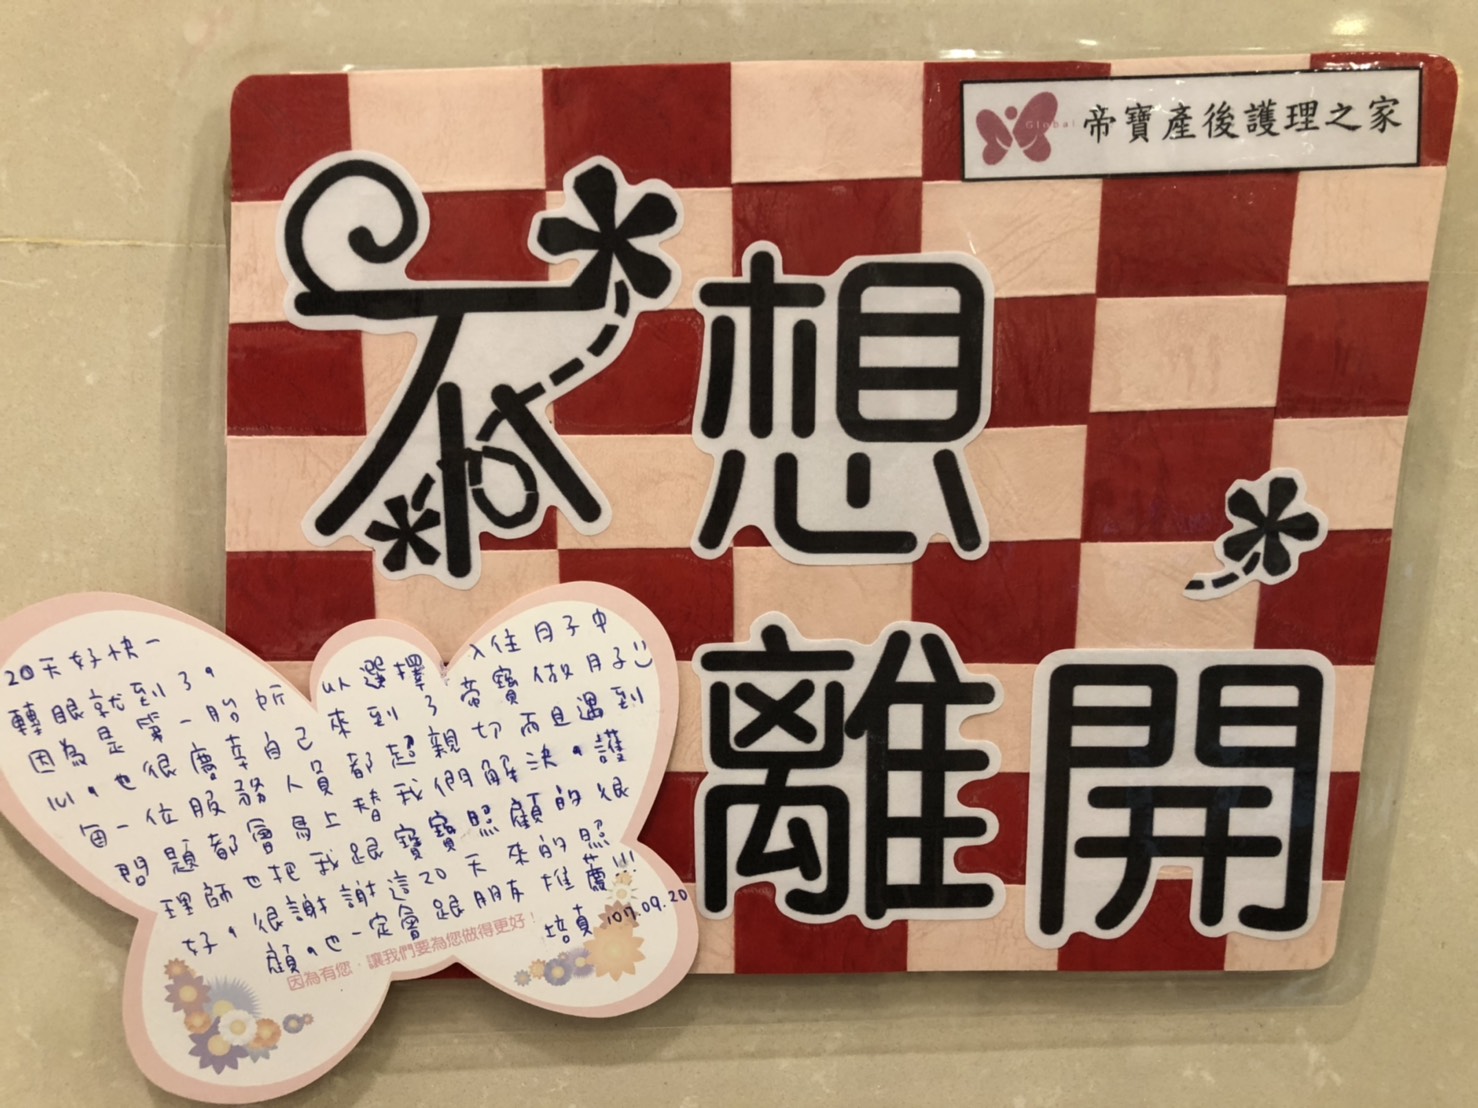 Global
帝寶產後護理之家
不想
離開
20天好快一
轉眼就到了。
因為是第一胎所以選擇入住月子中
心。也很慶幸自己來到了帝寶做月子
每一位服務人員都超親切而且遇到
問題都會馬上替我們解決。護
理師也把我跟寶寶照顧的很
好。很謝謝這20天來的照
顧。也一定會跟朋友推薦!!!
培真 107.09.20
因為有您．讓我們要為您做得更好！